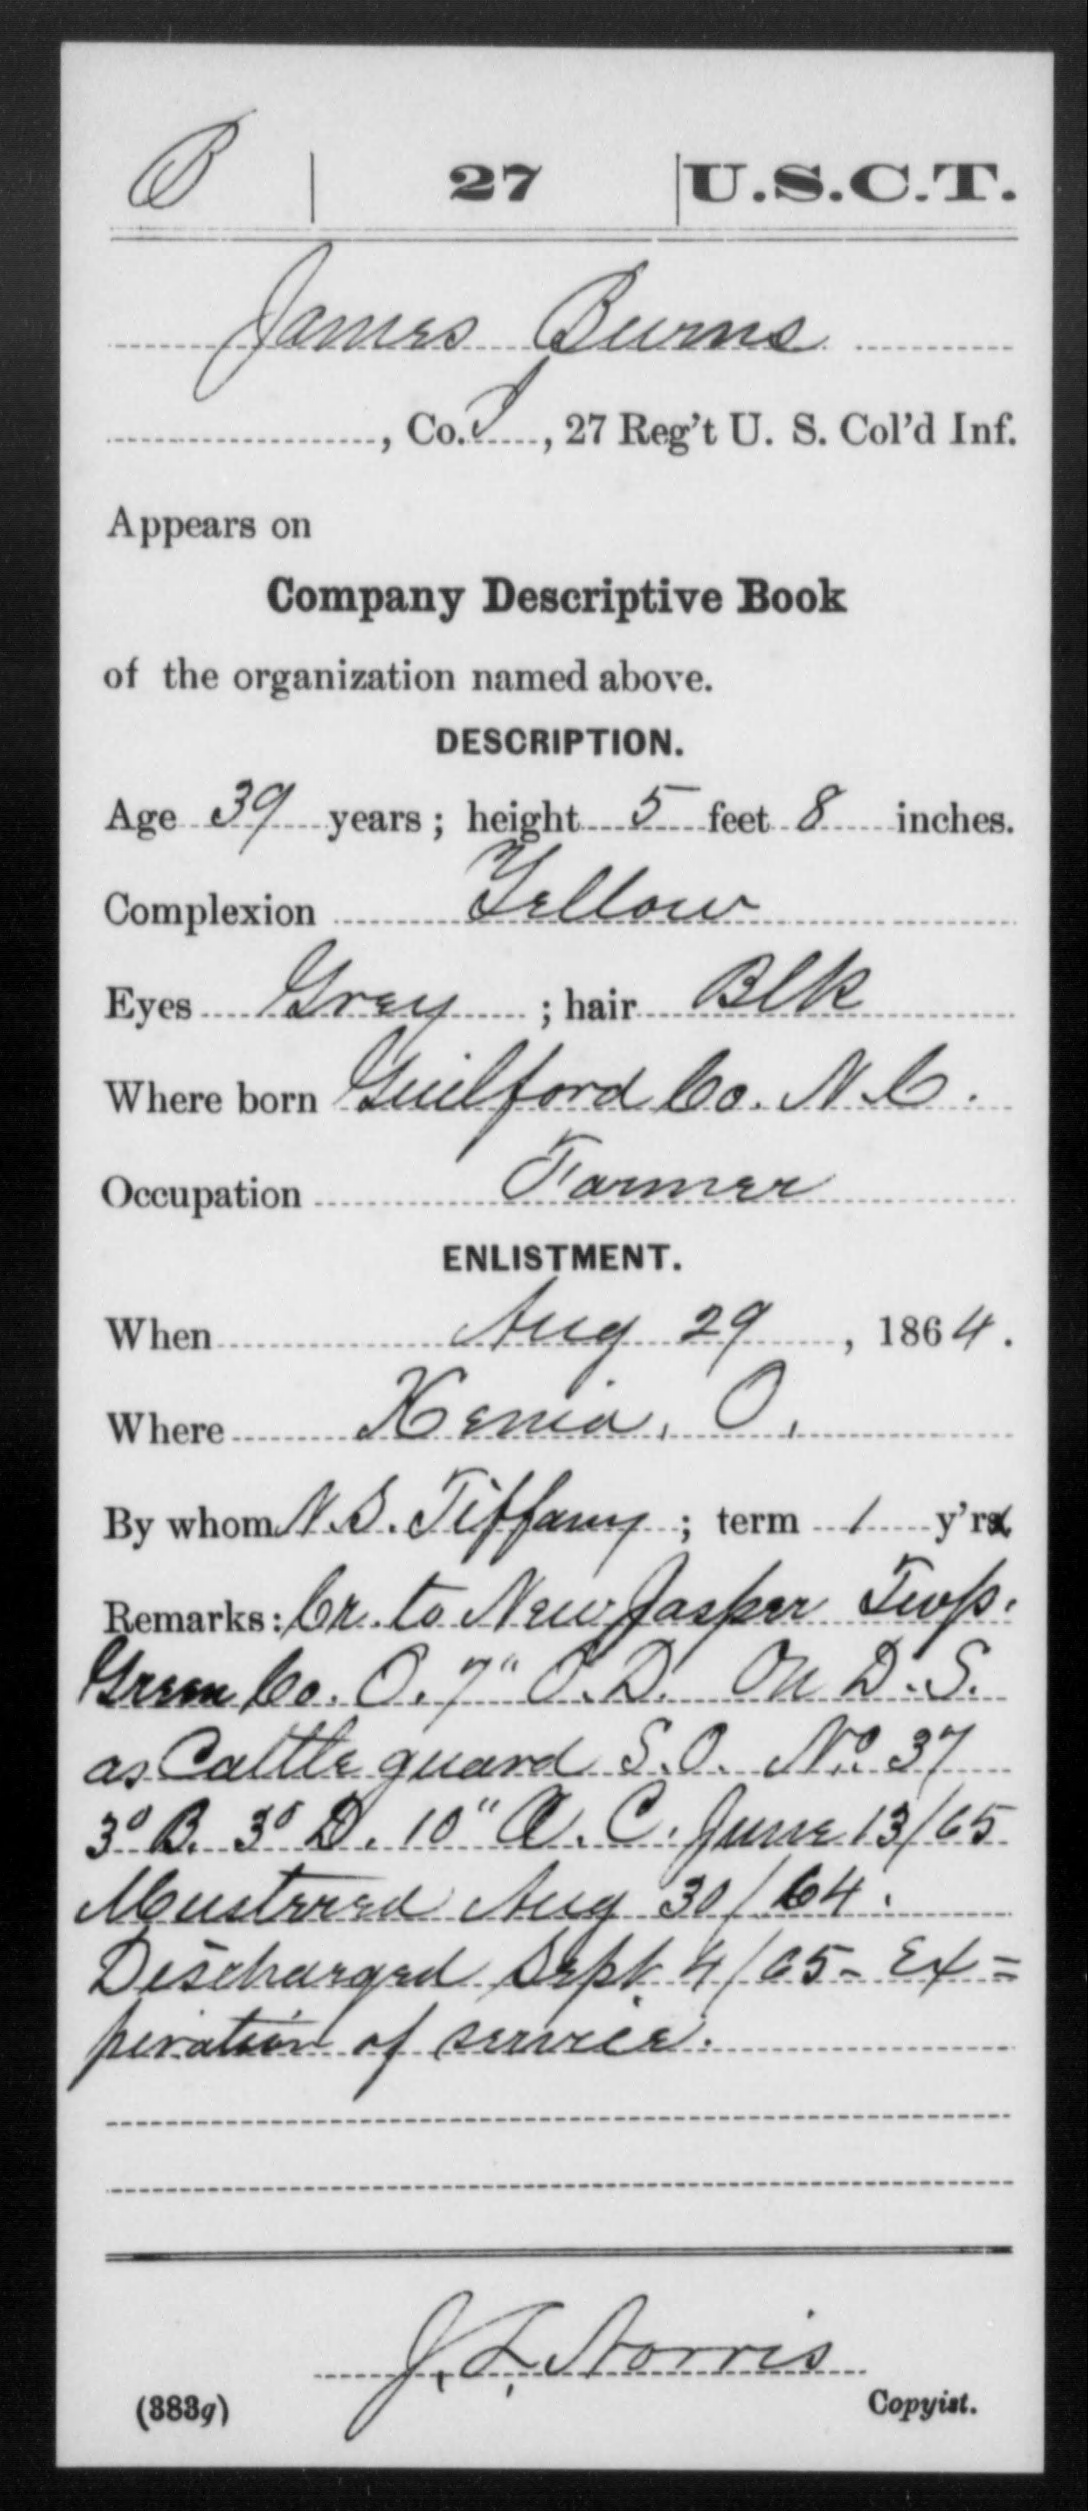 B | 27 | U.S.C.T.
James Burns
, Co. I, 27 Reg't U. S. Col'd Inf.
Appears on
Company Descriptive Book
of the organization named above.
DESCRIPTION.
Age 39 years; height 5 feet 8 inches.
Complexion Yellow
Eyes Grey; hair Blk
Where born Guilford Co. N.C.
Occupation Farmer
ENLISTMENT.
When Aug 29, 1864.
Where Xenia, O,
By whom N.S. Tiffany; term 1 y'rs
Remarks: Cr. to New Jasper Twp.
Green Co. O. 7" O.D. On D.S.
as Cattle guard S.O. No. 37
3d B. 3d D. 10" A.C. June 13/65
Mustered Aug 30/64.
Discharged Sept 4/65- Ex=
piration of service.
J. L. Norris
(383g) Copyist.